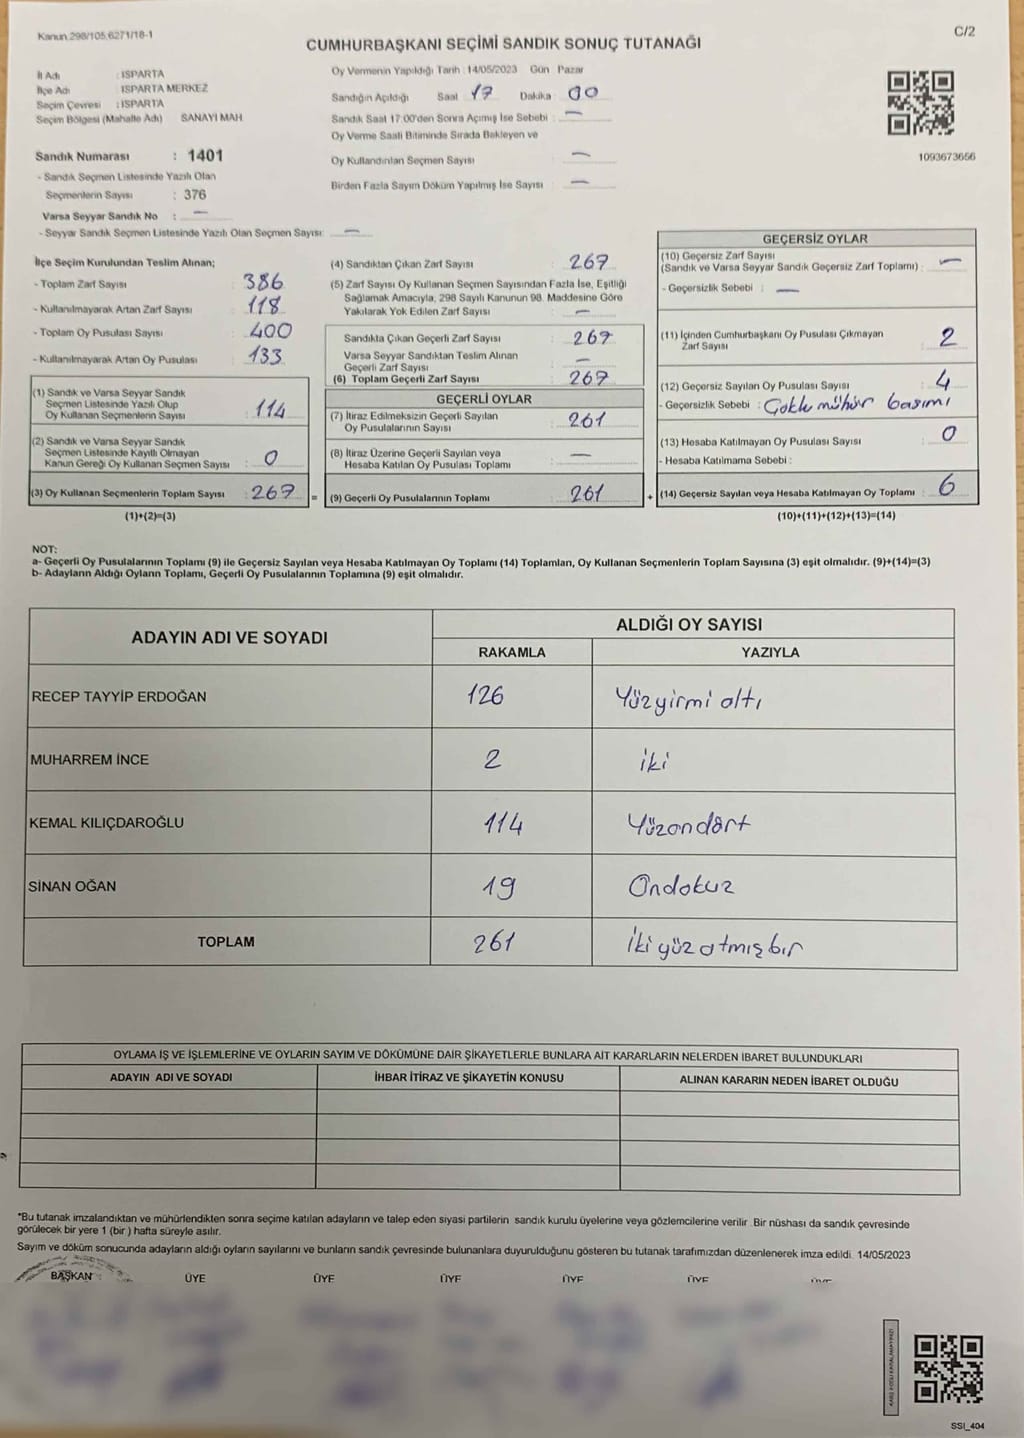 Kanun 298/105,6271/18-1
C/2
CUMHURBAŞKANI SEÇİMİ SANDIK SONUÇ TUTANAĞI
İl Adı : ISPARTA
İlçe Adı : ISPARTA MERKEZ
Seçim Çevresi : ISPARTA
Seçim Bölgesi (Mahalle Adı) SANAYİ MAH
Sandık Numarası : 1401
- Sandık Seçmen Listesinde Yazılı Olan
Seçmenlerin Sayısı : 376
Varsa Seyyar Sandık No : —
- Seyyar Sandık Seçmen Listesinde Yazılı Olan Seçmen Sayısı: —
Oy Vermenin Yapıldığı Tarih : 14/05/2023 Gün Pazar
Sandığın Açıldığı Saat 17 Dakika 00
Sandık Saat 17:00'den Sonra Açımış İse Sebebi : —
Oy Verme Saati Bitiminde Sırada Bekleyen ve
Oy Kullandırılan Seçmen Sayısı —
Birden Fazla Sayım Döküm Yapılmış İse Sayısı : —
1093673656
İlçe Seçim Kurulundan Teslim Alınan;
- Toplam Zarf Sayısı : 386
- Kullanılmayarak Artan Zarf Sayısı : 118
- Toplam Oy Pusulası Sayısı : 400
- Kullanılmayarak Artan Oy Pusulası : 133
(1) Sandık ve Varsa Seyyar Sandık
Seçmen Listesinde Yazılı Olup
Oy Kullanan Seçmenlerin Sayısı : 114
(2) Sandık ve Varsa Seyyar Sandık
Seçmen Listesinde Kayıtlı Olmayan
Kanun Gereği Oy Kullanan Seçmen Sayısı : 0
(3) Oy Kullanan Seçmenlerin Toplam Sayısı : 267 =
(1)+(2)=(3)
(4) Sandıktan Çıkan Zarf Sayısı : 267
(5) Zarf Sayısı Oy Kullanan Seçmen Sayısından Fazla İse, Eşitliği
Sağlamak Amacıyla, 298 Sayılı Kanunun 98. Maddesine Göre
Yakılarak Yok Edilen Zarf Sayısı : —
Sandıkta Çıkan Geçerli Zarf Sayısı : 267
Varsa Seyyar Sandıktan Teslim Alınan
Geçerli Zarf Sayısı : —
(6) Toplam Geçerli Zarf Sayısı : 267
GEÇERLİ OYLAR
(7) İtiraz Edilmeksizin Geçerli Sayılan
Oy Pusulalarının Sayısı : 261
(8) İtiraz Üzerine Geçerli Sayılan veya
Hesaba Katılan Oy Pusulası Toplamı : —
(9) Geçerli Oy Pusulalarının Toplamı : 261 +
GEÇERSİZ OYLAR
(10) Geçersiz Zarf Sayısı
(Sandık ve Varsa Seyyar Sandık Geçersiz Zarf Toplamı) : —
- Geçersizlik Sebebi : —
(11) İçinden Cumhurbaşkanı Oy Pusulası Çıkmayan
Zarf Sayısı : 2
(12) Geçersiz Sayılan Oy Pusulası Sayısı : 4
- Geçersizlik Sebebi : Çoklu mühür basımı
(13) Hesaba Katılmayan Oy Pusulası Sayısı : 0
- Hesaba Katılmama Sebebi :
(14) Geçersiz Sayılan veya Hesaba Katılmayan Oy Toplamı : 6
(10)+(11)+(12)+(13)=(14)
NOT:
a- Geçerli Oy Pusulalarının Toplamı (9) ile Geçersiz Sayılan veya Hesaba Katılmayan Oy Toplamı (14) Toplamları, Oy Kullanan Seçmenlerin Toplam Sayısına (3) eşit olmalıdır. (9)+(14)=(3)
b- Adayların Aldığı Oyların Toplamı, Geçerli Oy Pusulalarının Toplamına (9) eşit olmalıdır.
ADAYIN ADI VE SOYADI ALDIĞI OY SAYISI
RAKAMLA YAZIYLA
RECEP TAYYİP ERDOĞAN 126 Yüzyirmi altı
MUHARREM İNCE 2 iki
KEMAL KILIÇDAROĞLU 114 Yüzondört
SİNAN OĞAN 19 Ondokuz
TOPLAM 261 İkiyüzatmışbir
OYLAMA İŞ VE İŞLEMLERİNE VE OYLARIN SAYIM VE DÖKÜMÜNE DAİR ŞİKAYETLERLE BUNLARA AİT KARARLARIN NELERDEN İBARET BULUNDUKLARI
ADAYIN ADI VE SOYADI İHBAR İTİRAZ VE ŞİKAYETİN KONUSU ALINAN KARARIN NEDEN İBARET OLDUĞU
*Bu tutanak imzalandıktan ve mühürlendikten sonra seçime katılan adayların ve talep eden siyasi partilerin sandık kurulu üyelerine veya gözlemcilerine verilir. Bir nüshası da sandık çevresinde
görülecek bir yere 1 (bir ) hafta süreyle asılır.
Sayım ve döküm sonucunda adayların aldığı oyların sayılarını ve bunların sandık çevresinde bulunanlara duyurulduğunu gösteren bu tutanak tarafımızdan düzenlenerek imza edildi. 14/05/2023
BAŞKAN ÜYE ÜYE ÜYE ÜYE ÜYE ÜYE
SSI_404